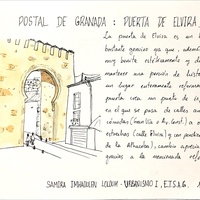 POSTAL DE GRANADA : PUERTA DE ELVIRA
La puerta de Elvira es un b
bastante gracias ya que, además
muy bonita estéticamente y de
mantener una posición de histo
un lugar enteramente reformado
puerta crea un punto de in
en el que se pasa de calles am
cómodas (Gran Vía o Av. Const.) a o
estrechas (calle Elvira) y con pendien
de la Alhambra), cambio aprecia
gracias a la mencionada refor
SAMIRA IMHAOULEN LOLOUH - URBANISMO I, E.T.S.A.G.